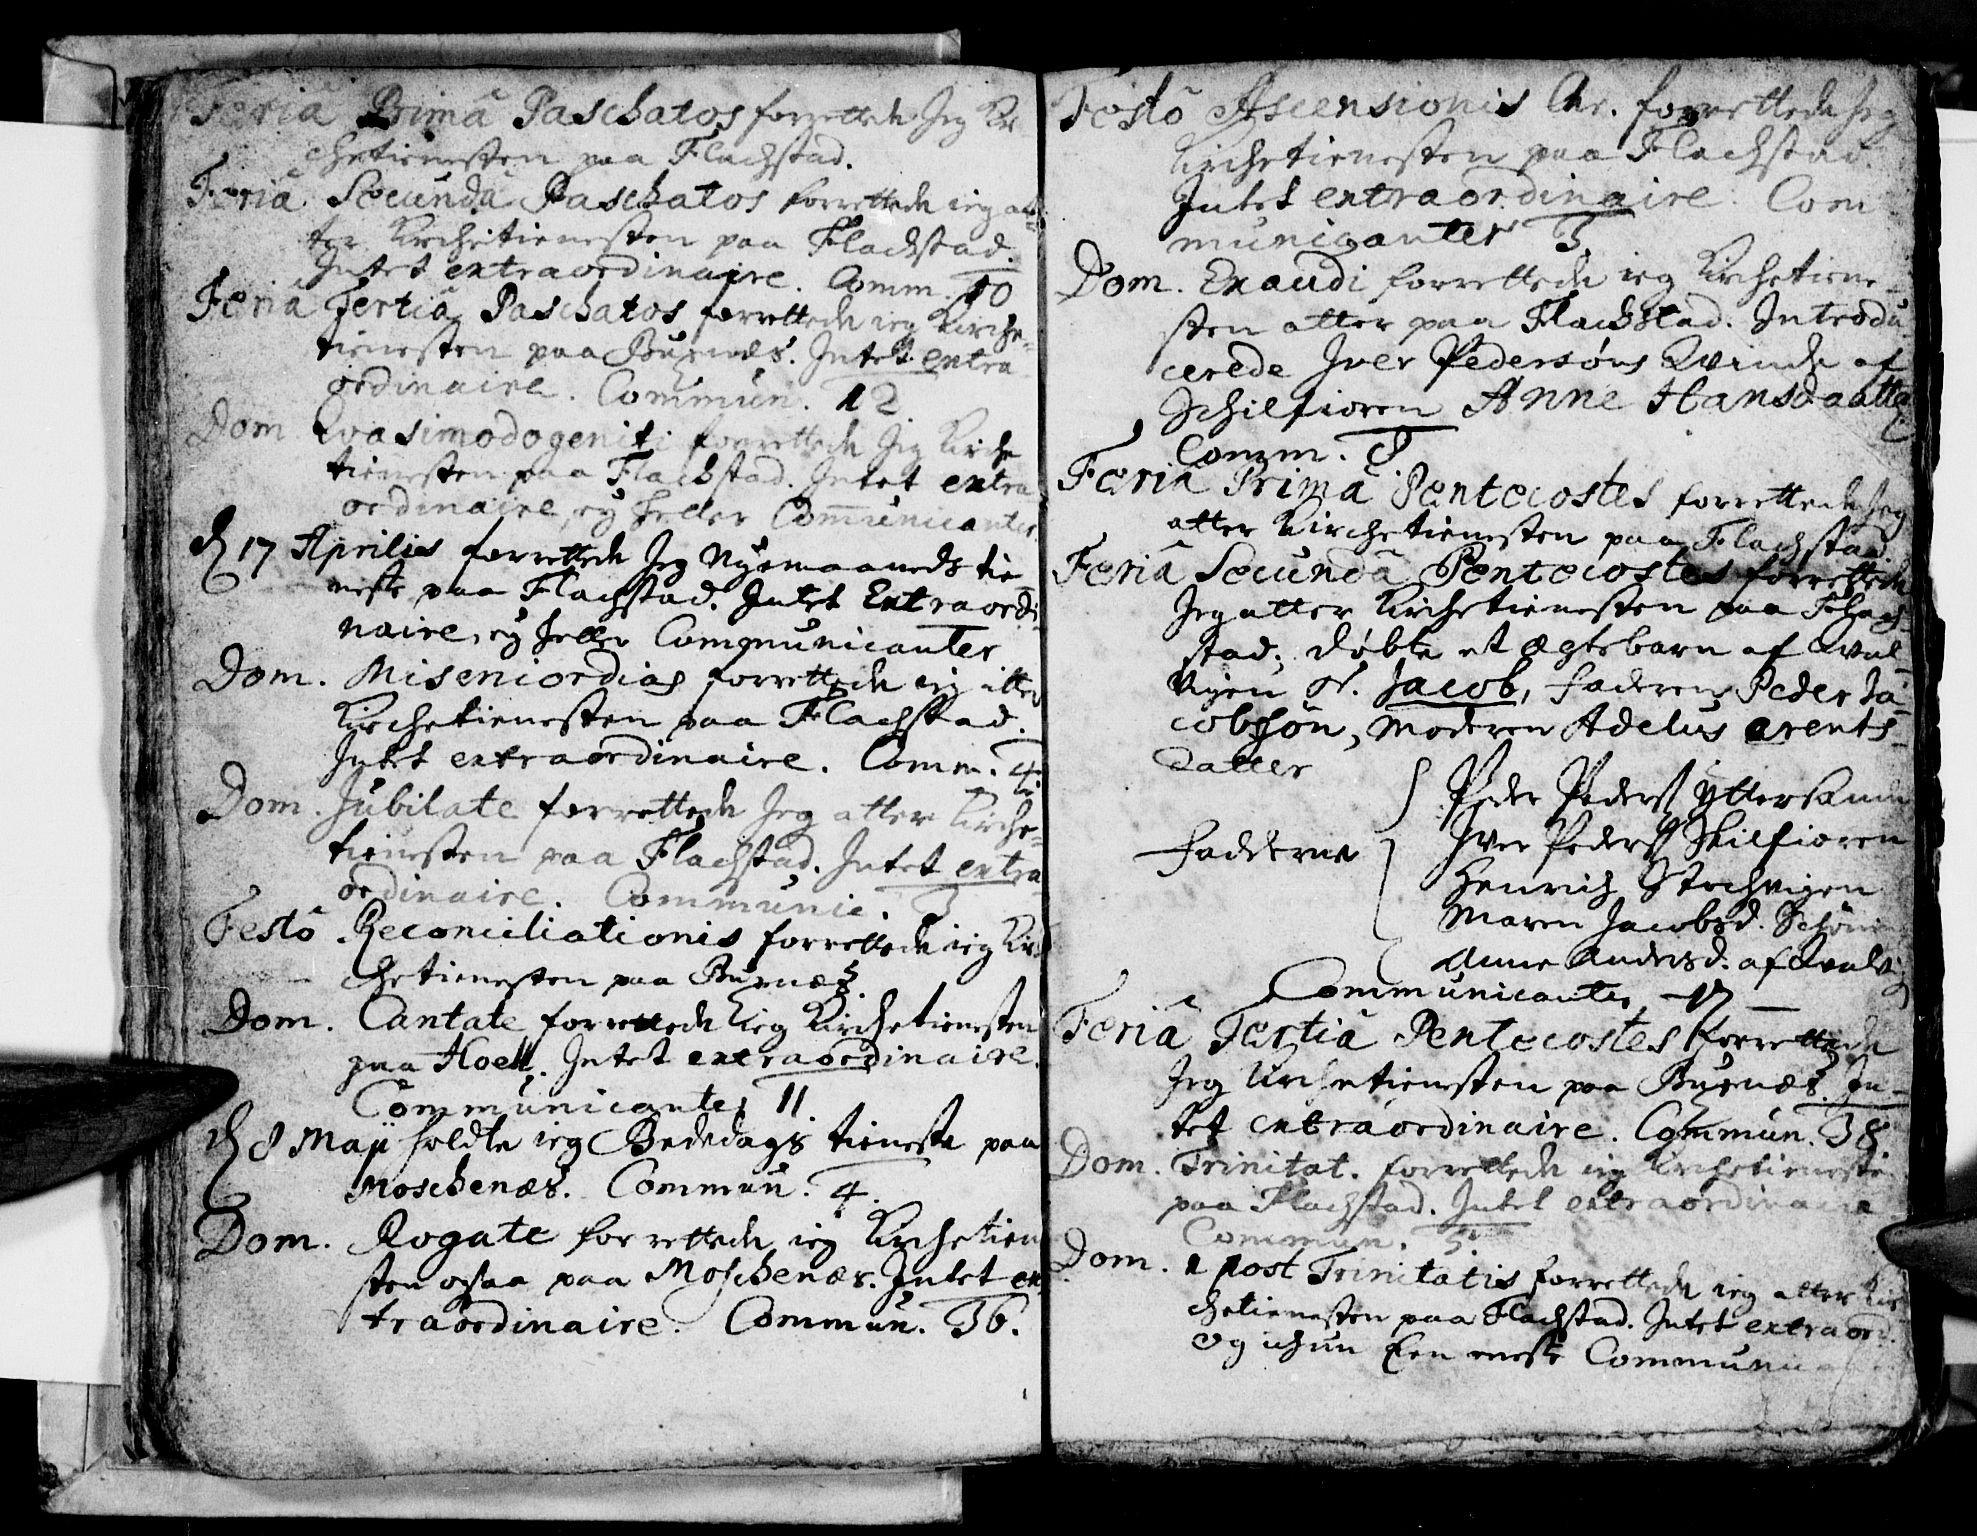 Feriâ Primâ Paschatos forrettede Jeg Kir
chetienesten paa Flachstad.
Feriâ Secundâ Paschatos forrettede ieg at-
ter Kirchetienesten paa Flachstad.
Intet extraordinaire. Comm. 10
Feriâ Tertiâ Paschatos forrettede ieg Kirche-
tienesten paa Buxnæs. Intet extra
ordinaire. Commun. 12
Dom. Qvasimodogeniti forrettede Jeg Kirche
tienesten paa Flachstad. Intet extra
ordinaire, ey heller Com̄unicanter
d 17 Aprilis forrettede Jeg Nyemaaneds tie
neste paa Flachstad. Intet Extraordi-
naire, ey heller Communicanter
Dom. Misericordias forrettede ieg atter
Kirchetienesten paa Flachstad.
Intet extraordinaire. Comm. 4.
Dom. Jubilate forrettede Jeg atter Kirche-
tienesten paa Flachstad. Intet extra
ordinaire. Communic. 3
Festô Reconciliationis forrettede ieg Kir-
chetienesten paa Buxnæs
Dom. Cantate forrettede ieg Kirchetienesten
paa Hoell. Intet extraordinaire.
Communicanter 11
d 8 Maji holdte ieg Bededags tieneste paa
Moschenæs. Commun. 4.
Dom. Rogate forrettede ieg Kirchetien
sten ogsaa paa Moschenæs. Intet ex
traordinaire. Commun. 36.
Festô Ascensionis Chr. forrettede Jeg
Kirchetienesten paa Flachstad.
Intet extraordinaire. Com
municanter 3
Dom. Exaudi forrettede ieg Kirchetiene-
sten atter paa Flachstad. Introdu-
cerede Iver Pedersøns Kvinde af
Schilfioren Anne Hansdaatter
Comm. 8
Feriâ Primâ Pentecostes forrettede Jeg
atter Kirchetienesten paa Flachstad.
Feriâ Secundâ Pentecostes forrettede
Jeg atter Kirchetienesten paa Flach-
stad. døbte et Ægtebarn af Qval-
vigen N. Jacob, Faderen Peder Ja-
cobsøn, Moderen Adelus Arents-
datter
Peder Peders Yttersande
Iver Peders Skilfioren
Fadderne
Henrich Strchvigen
Maren Jacobsd. Schönin
Anne Andersd. af Qvalvig
Communicanter 17
Feriâ Tertiâ Pentecostes forrettede
Jeg Kirchetienesten paa Buxnæs. In-
tet extraordinaire. Commun. 38
Dom. Trinitat. forrettede ieg Kirchetieneste
paa Flachstad. Intet extraordinaire
Commun. 5
Dom. 1 post Trinitatis forrettede ieg atter Kir
chetienesten paa Flachstad. Intet extraord.
og ichun Een eneste Communic